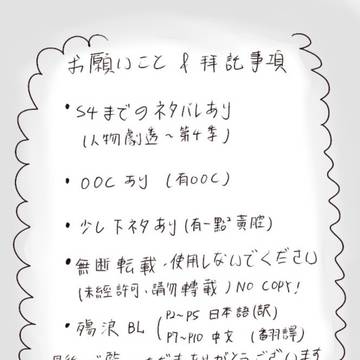 お願いこと & 拜託事項
・S4までのネタバレあり
(人物劇透~第4季)
・OOCあり (有OOC)
・少し下ネタあり(有一點黃腔)
・無断転載・使用しないでください
(未經許可、請勿轉載) NO COPY!
・殤浪BL (P2~P5 日本語(訳)
P7~P10 中文 (翻譯)